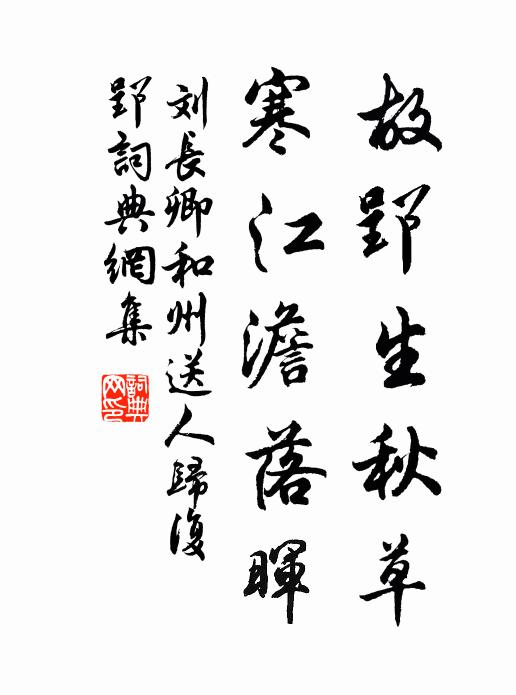 故郢生秋草
寒江澹落暉
刘長卿和州送人歸復
郢詞典網集
詞典
网印